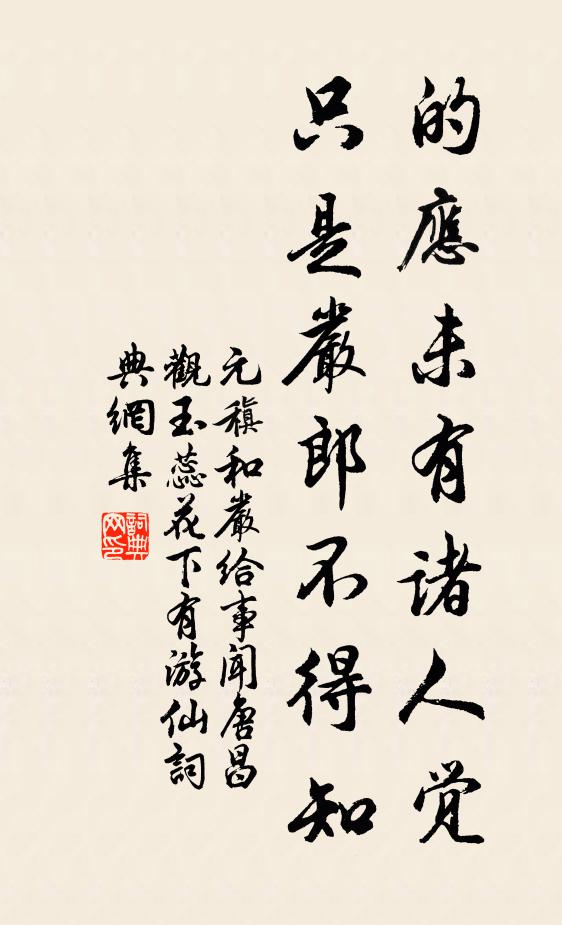 的應未有諸人覚
只是嚴郎不得知
元稹和嚴给事聞唐昌
觀玉蕊花下有游仙詞
典網集
詞典
网印